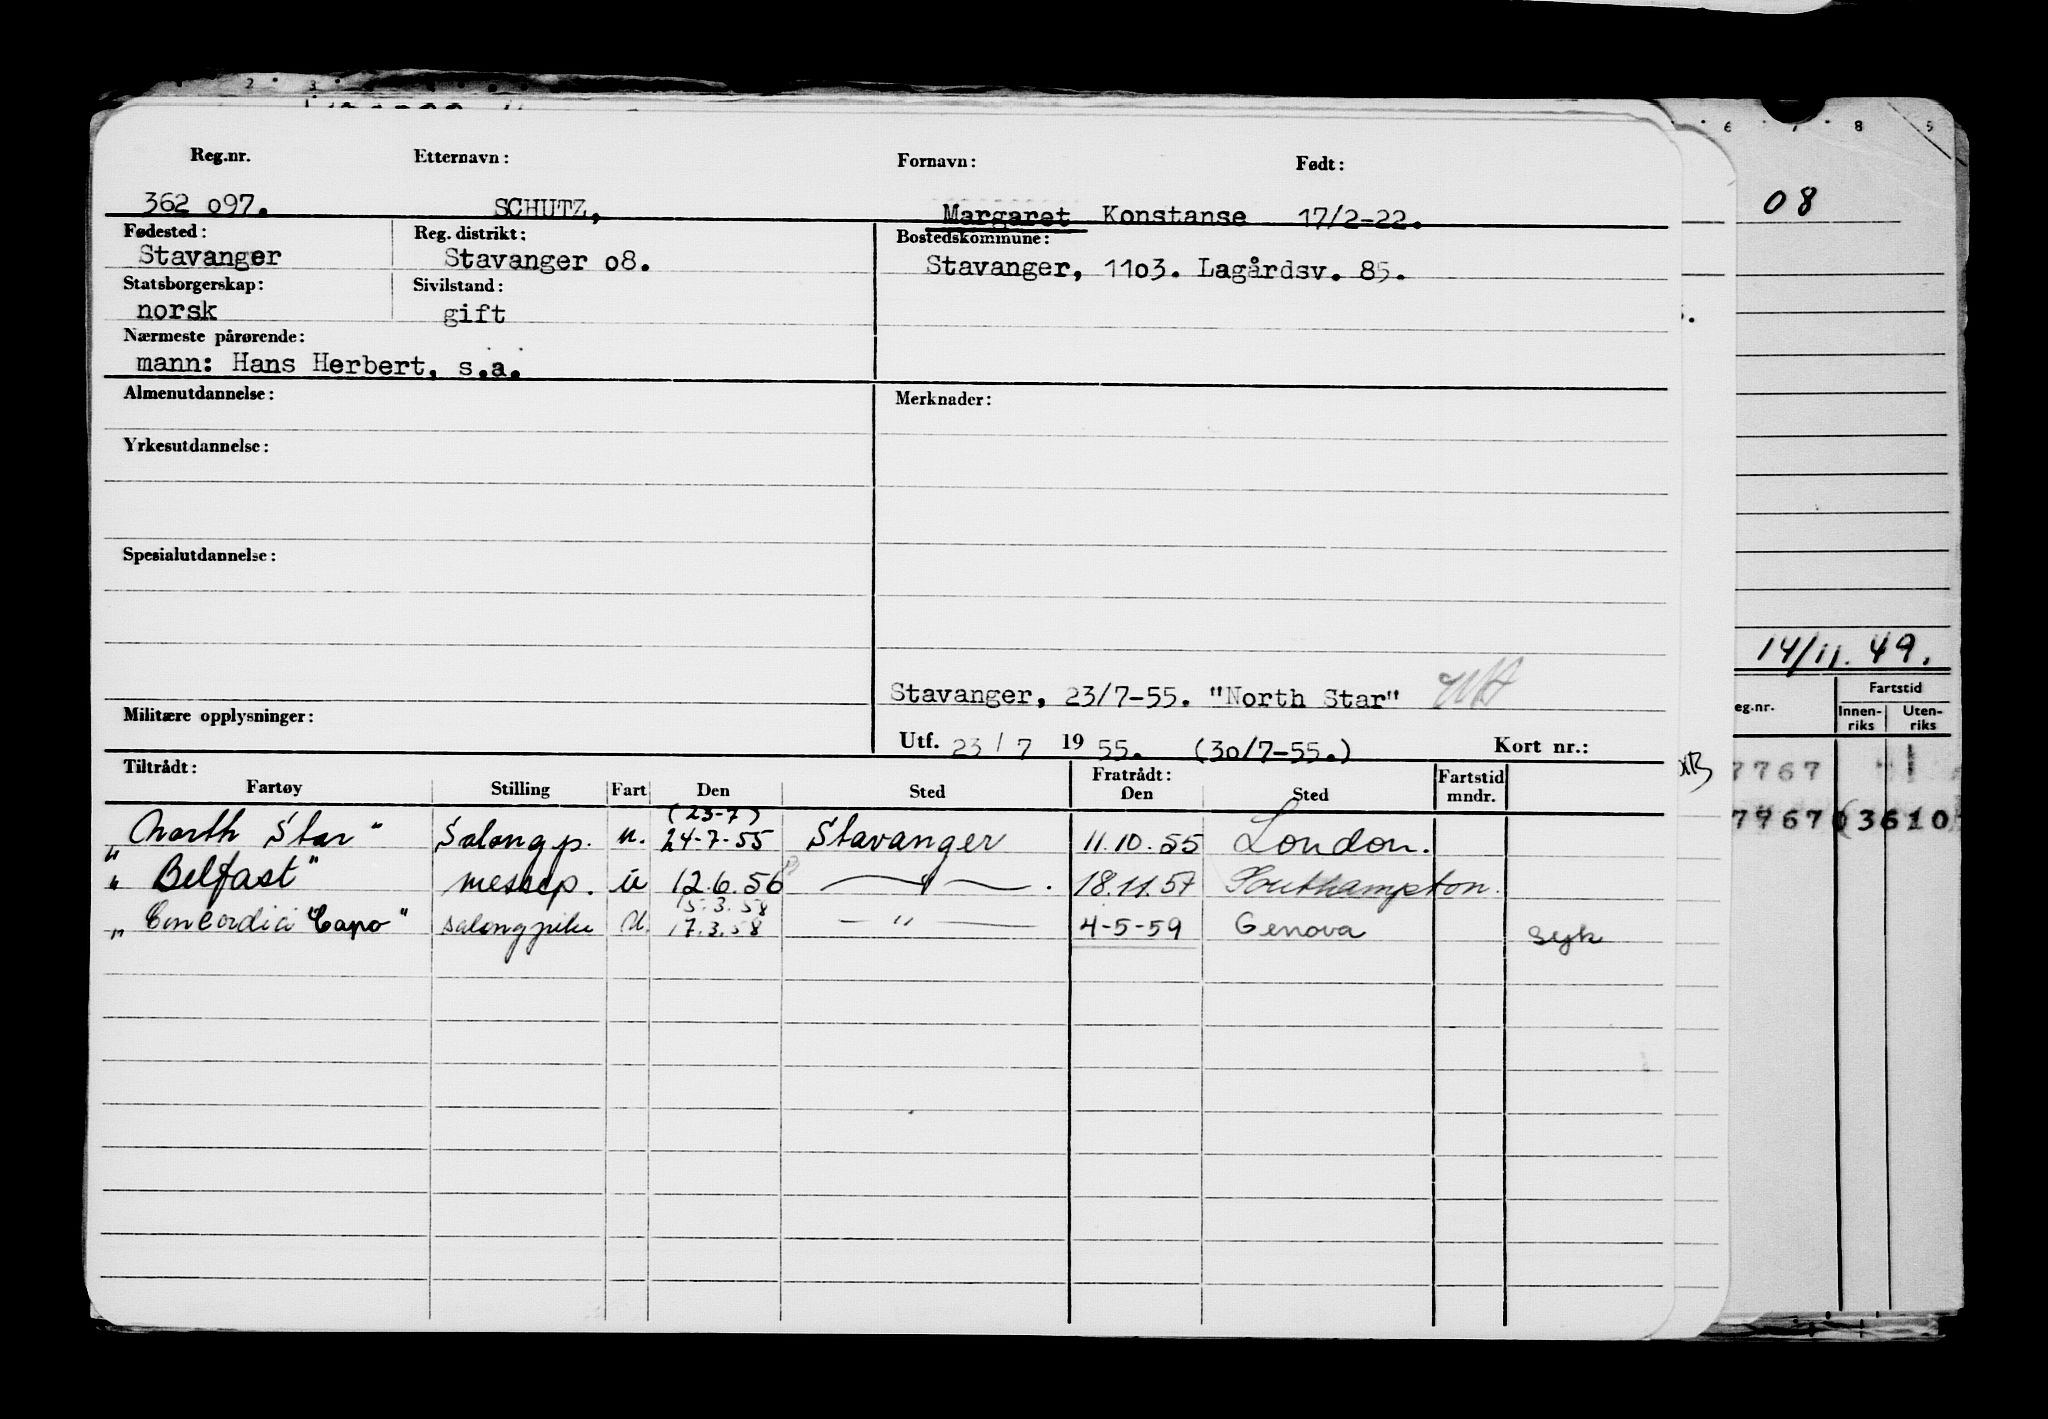 Reg.nr. Etternavn: Fornavn: Født:
362 o97. SCHUTZ, Margaret Konstanse 17/2-22.
Fødested: Reg. distrikt: Bostedskommune:
Stavanger Stavanger o8. Stavanger, 11o3. Lagårdsv. 85.
Statsborgerskap: Sivilstand:
norsk gift
Nærmeste pårørende:
mann: Hans Herbert, s.a.
Almenutdannelse: Merknader:
Yrkesutdannelse:
Spesialutdannelse:
Stavanger, 23/7-55. "North Star"
Militære opplysninger:
Utf. 23/7 19 55. (3o/7-55.) Kort nr.:
Tiltrådt: Fratrådt: Fartstid
Fartøy Stilling Fart Den Sted Den Sted mndr.
(23-7)
"North Star" Salongp. u. 24-7-55 Stavanger 11.10.55 London.
"Belfast" messep. u 12.6.56 — " — . 18.11.57 Southampton.
15.3.58
"Concordia Capo" salongpike U. 17.3.58 — " — 4-5-59 Genova syk
2 3
6 7 8 9
08
14/11.49.
eg.nr. Fartstid
Innen-riks Uten-riks
7767 1
7767 03610